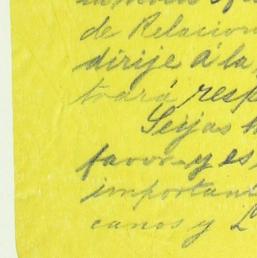 de Relacion
dirije á la
tará resp
Seijas
favor y es
importan
canos y L